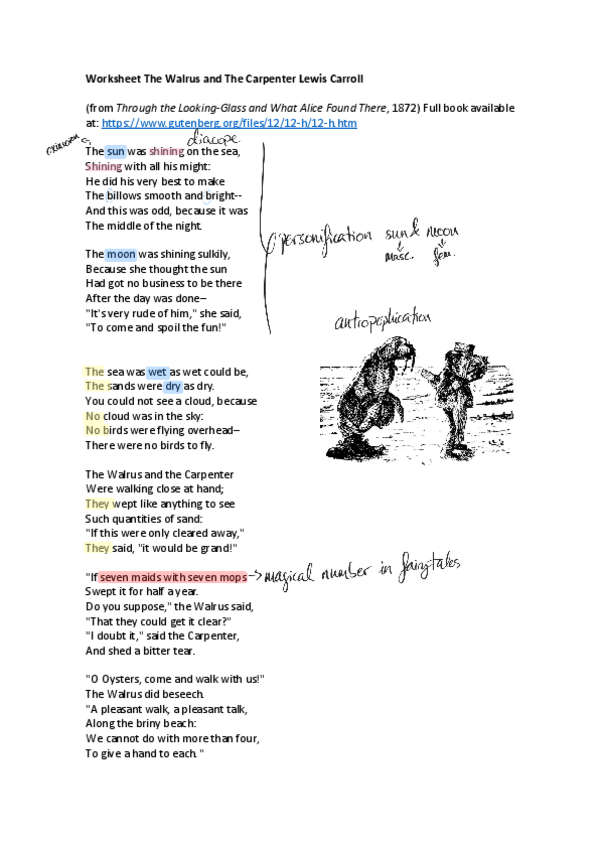 Worksheet The Walrus and The Carpenter Lewis Carroll
(from Through the Looking-Glass and What Alice Found There, 1872) Full book available
at: https://www.gutenberg.org/files/12/12-h/12-h.htm
diacope
The sun was shining on the sea,
Shining with all his might:
He did his very best to make
The billows smooth and bright--
And this was odd, because it was
The middle of the night.
personification sun & moon
masc. fem.
The moon was shining sulkily,
Because she thought the sun
Had got no business to be there
After the day was done–
"It's very rude of him," she said,
"To come and spoil the fun!"
The sea was wet as wet could be,
The sands were dry as dry.
You could not see a cloud, because
No cloud was in the sky:
No birds were flying overhead–
There were no birds to fly.
The Walrus and the Carpenter
Were walking close at hand;
They wept like anything to see
Such quantities of sand:
"If this were only cleared away,"
They said, "it would be grand!"
"If seven maids with seven mops -> magical number in fairytales
Swept it for half a year.
Do you suppose," the Walrus said,
"That they could get it clear?"
"I doubt it," said the Carpenter,
And shed a bitter tear.
"O Oysters, come and walk with us!"
The Walrus did beseech.
"A pleasant walk, a pleasant talk,
Along the briny beach:
We cannot do with more than four,
To give a hand to each."